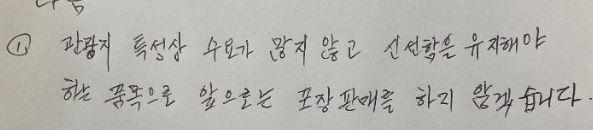 ① 관광지 특성상 수요가 많지 않고 신선함을 유지해야
하는 품목으로 앞으로는 포장판매를 하지 않겠습니다.